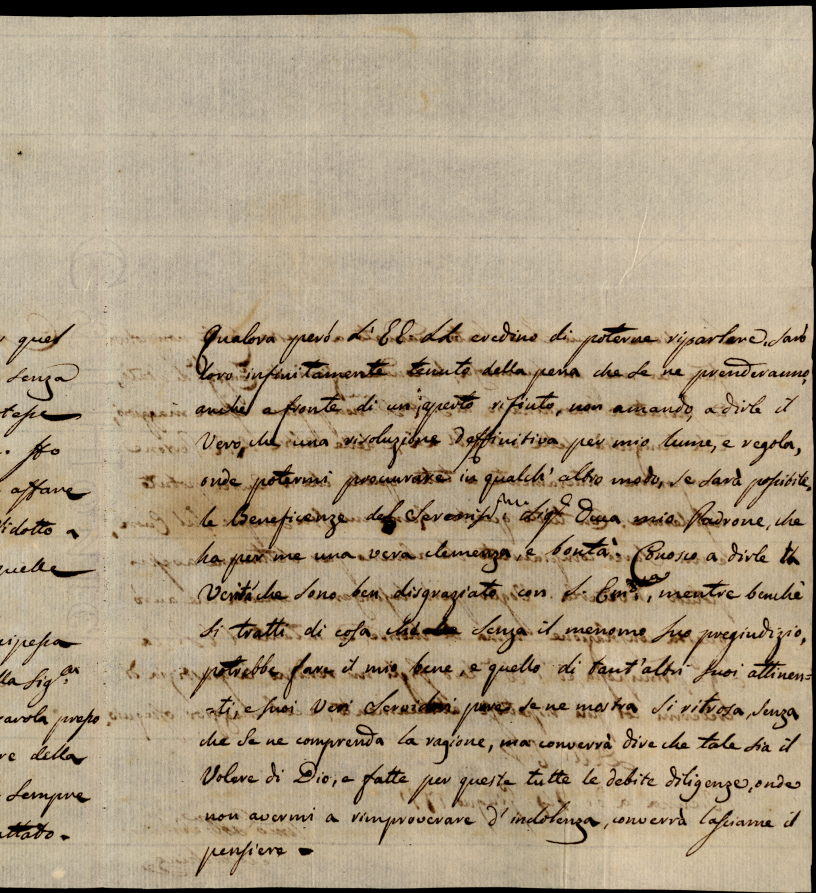 quel
senza
affare
ridotto a
quelle
cipessa
lla Sig.ra
parola presso
re della
sempre
attato.
Qualora però l'EE. LL. credino di poterne riparlare, sarò
loro infinitamente tenuto della pena che se ne prenderanno,
anche a fronte di un aperto rifiuto, non amando, a dirle il
Vero, che una risoluzione deffinitiva per mio lume, e regola,
onde potermi procurare in qualch' altro modo, se sarà possibile,
le Beneficenze del Sereniss.mo Sig.r Duca mio Padrone, che
ha per me una vera clemenza, e bontà. Conosco a dirle la
Verità che sono ben disgraziato con S. Em.za, mentre benchè
si tratti di cosa che senza il menomo suo pregiudizio,
potrebbe fare il mio bene, e quello di tant'altri suoi attinen=
=ti, e suoi veri Servidori pure se ne mostra sì ritrosa, senza
che se ne comprenda la ragione, ma converrà dire che tale sia il
Volere di Dio, e fatte per questa tutte le debite diligenze, onde
non avermi a rimproverare d'indolenza, converrà lasciarne il
pensiere.